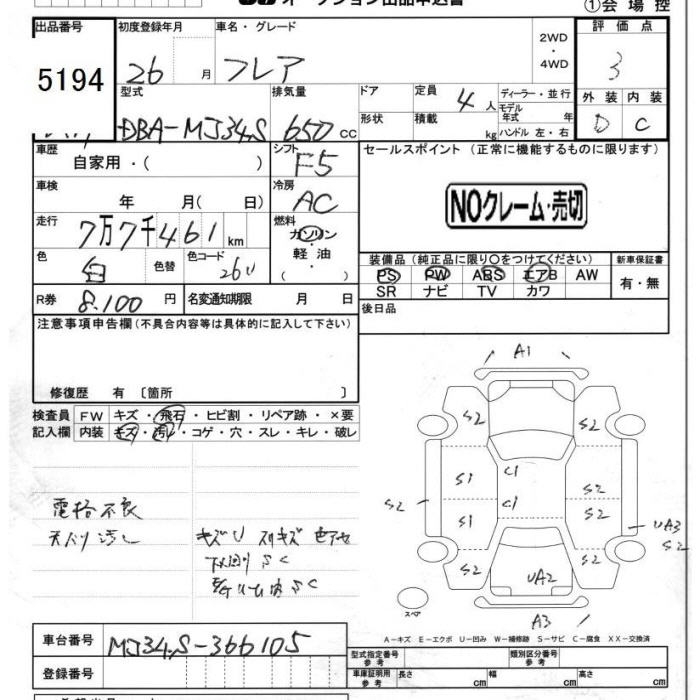 オークション出品申込書
①会場控
出品番号 初度登録年月 車名・グレード 2WD ・ 4WD 評価点
5194 26 月 フレア 3
型式 排気量 ドア 定員 4人 ディーラー・並行 外装 内装
DBA-MJ34S 650cc 形状 積載 kg モデル年式 年 D C
ハンドル 左・右
車歴 自家用・( ) シフト F5 セールスポイント (正常に機能するものに限ります)
車検 年 月( 日) 冷房 AC NOクレーム・売切
走行 7万7千461km 燃料 ガソリン・軽油・( )
色 白 色替 色コード 26U 装備品 (純正品に限り○をつけてください) 新車保証書
PS PW ABS エアB AW 有・無
SR ナビ TV カワ
R券 8,100円 名変通知期限 月 日 後日品
注意事項申告欄(不具合内容等は具体的に記入して下さい)
修復歴 有 〔箇所 〕
検査員 FW キズ・飛石・ヒビ割・リペア跡・×要
記入欄 内装 キズ・汚れ・コゲ・穴・スレ・キレ・破レ
A1
S2 S2
S1 C1 S2
S2 S1 C1 S2 UA3 S2
S2 UA2 S2
A3
スペア
電格不良
天バリ汚し キズU スリキズ 色アセ
下回りSC
A-キズ E-エクボ U-凹み W-補修跡 S-サビ C-腐食 XX-交換済
車台番号 MJ34S-366105 型式指定番号 参考 類別区分番号 参考
登録番号 車庫証明用 参考 長さ cm 幅 cm 高さ cm